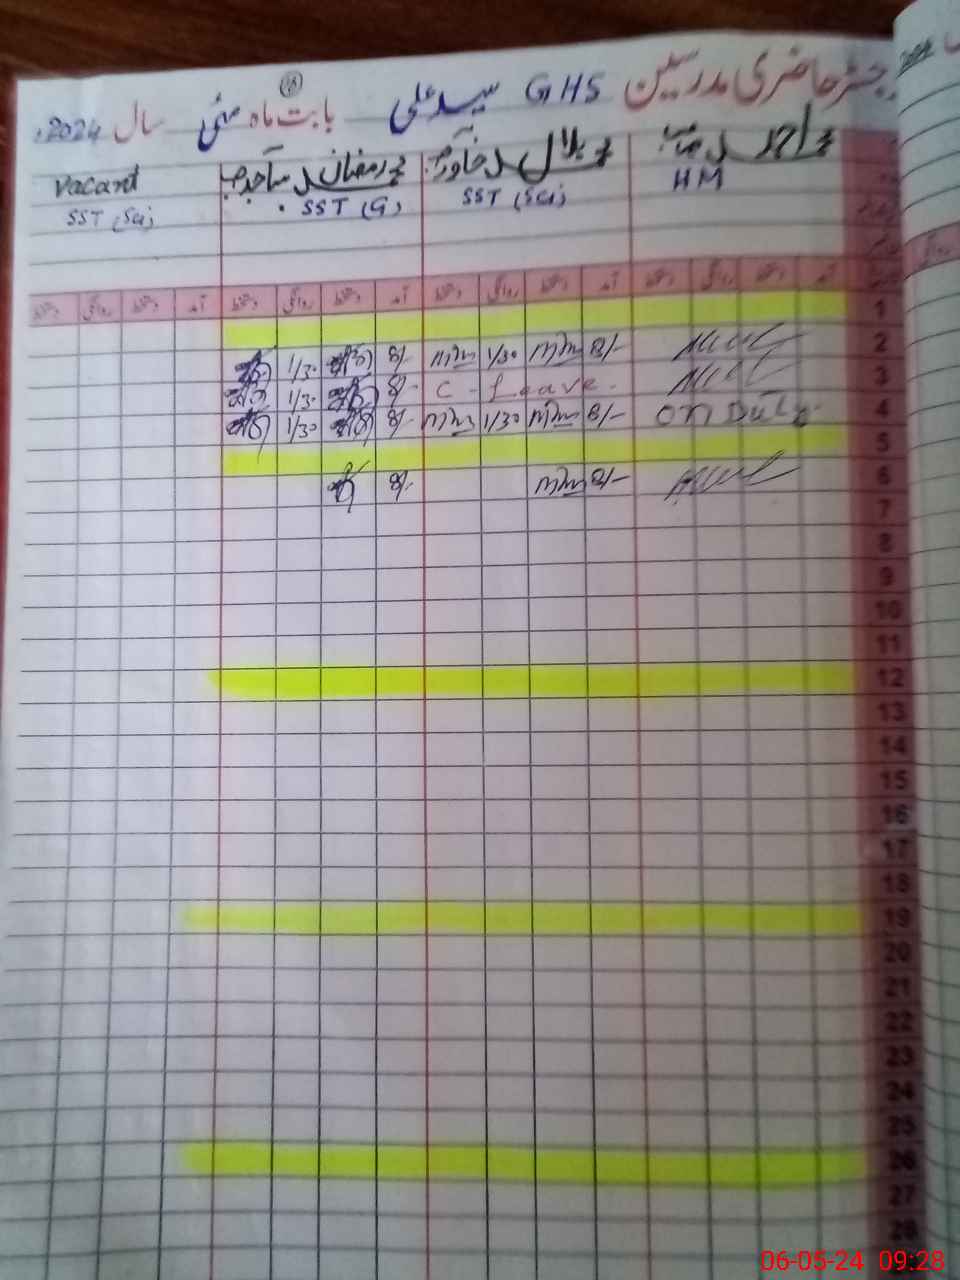 رجسٹر حاضری مدرسین GHS سید علی بابت ماہ مئی سال 2024ء
محمد احمد صاحب محمد بلال خاور صاحب محمد رمضان ساجد صاحب Vacant
HM SST (Sci) SST (G) SST (Sci)
آمد دستخط روانگی دستخط آمد دستخط روانگی دستخط آمد دستخط روانگی دستخط آمد دستخط روانگی دستخط
1
2 8/- 1/30 8/- 1/30
3 C-Leave 8/- 1/30
4 on Duty 8/- 1/30 8/- 1/30
5
6 8/- 8/-
7
8
9
10
11
12
13
14
15
16
17
18
19
20
21
22
23
24
25
26
27
28
06-05-24 09:28